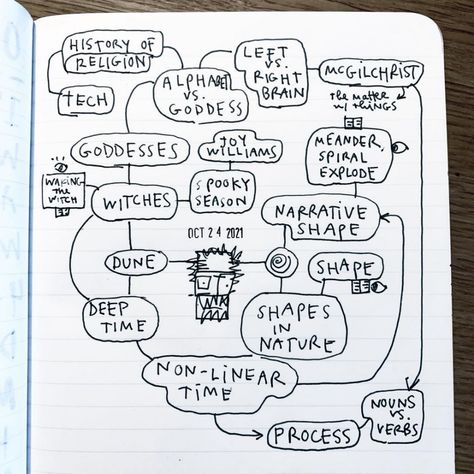 HISTORY OF
RELIGION
TECH
ALPHABET
VS.
GODDESS
LEFT
VS.
RIGHT
BRAIN
McGILCHRIST
The MATTER
W/ THINGS
GODDESSES
JOY
WILLIAMS
MEANDER,
SPIRAL
EXPLODE
WAKING
THE
WITCH
WITCHES
SPOOKY
SEASON
NARRATIVE
SHAPE
OCT 24 2021
DUNE
SHAPE
DEEP
TIME
SHAPES
IN
NATURE
NON-LINEAR
TIME
PROCESS
NOUNS
VS.
VERBS